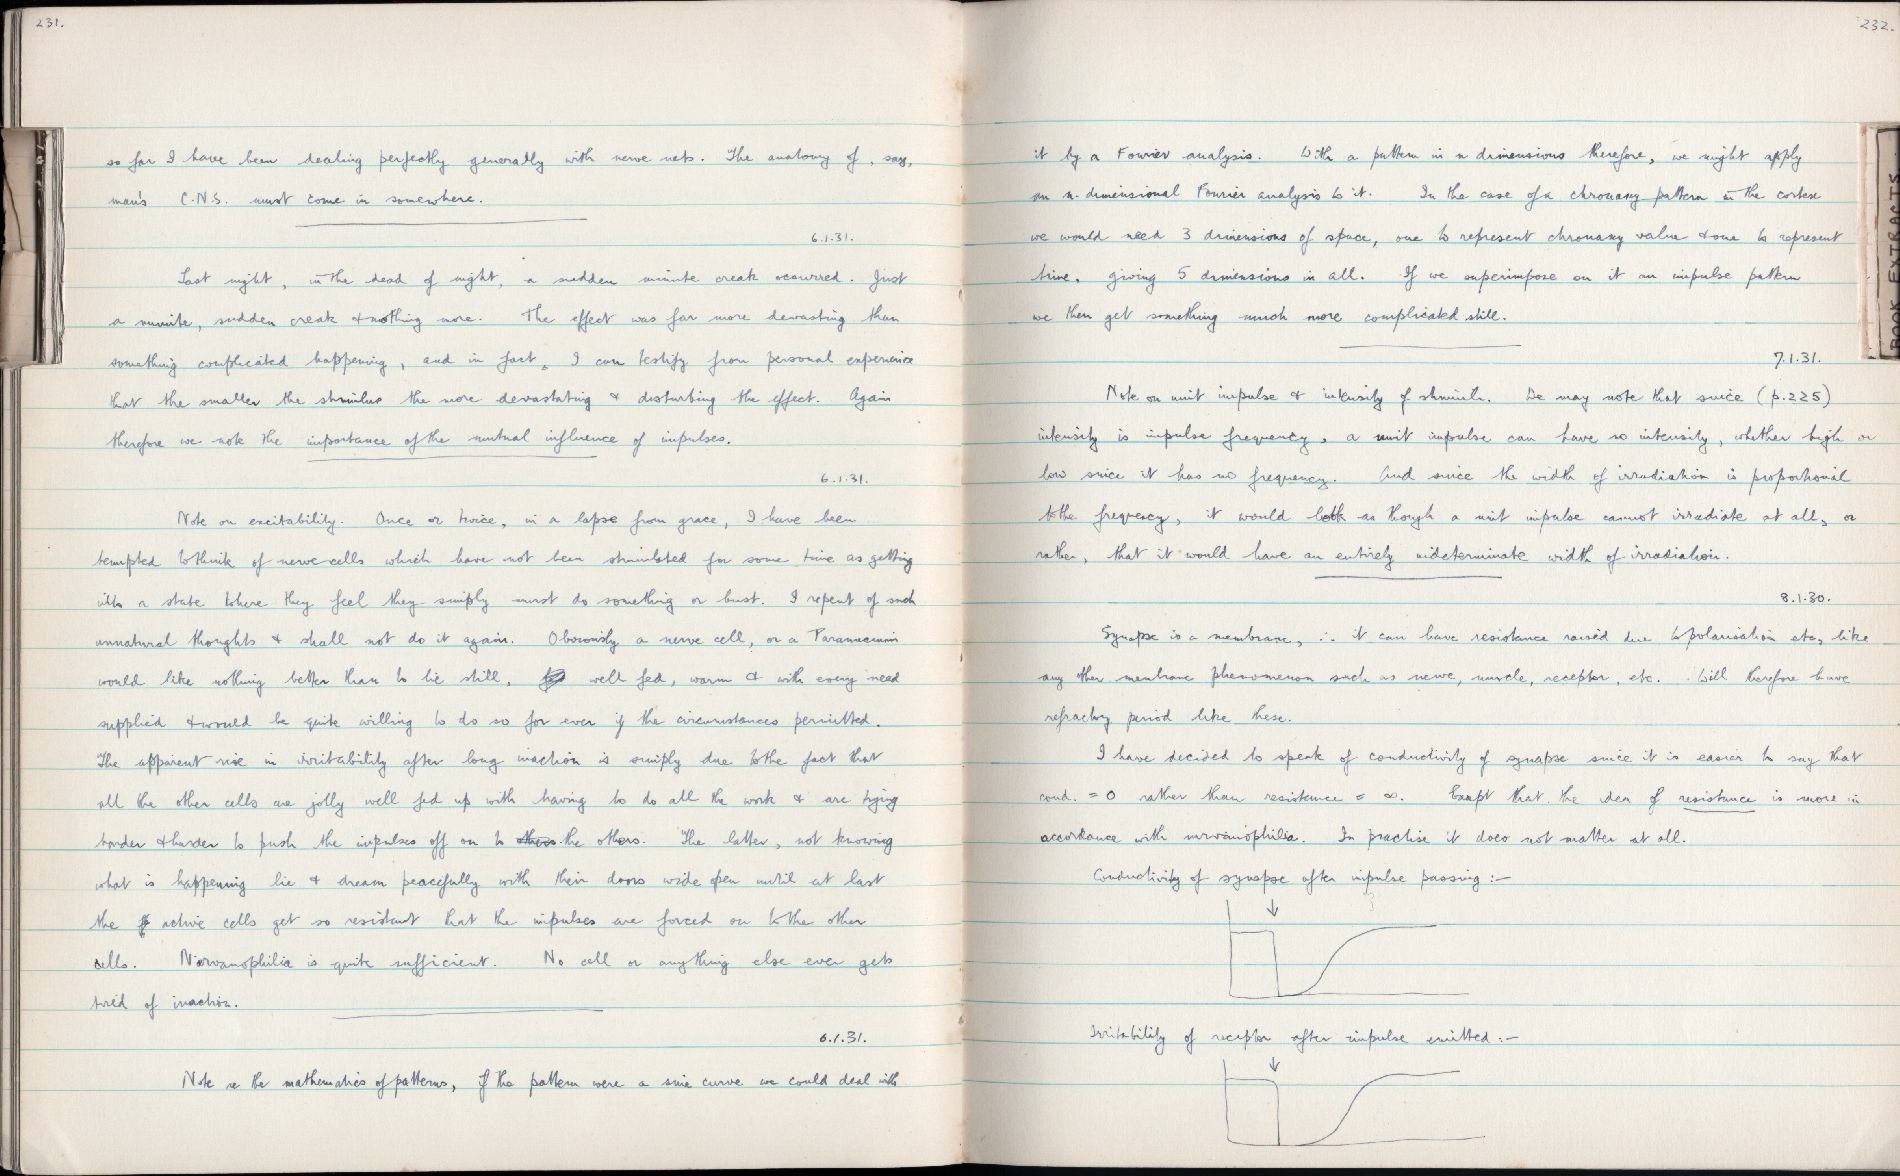 231.
so far I have been dealing perfectly generally with nerve nets. The anatomy of, say,
man's C.N.S. must come in somewhere.
6.1.31.
Last night, in the dead of night, a sudden minute creak occurred. Just
a minute, sudden creak & nothing more. The effect was far more devasting than
something complicated happening, and in fact, I can testify from personal experience
that the smaller the stimulus the more devastating & disturbing the effect. Again
therefore we note the importance of the mutual influence of impulses.
6.1.31.
Note on excitability. Once or twice, in a lapse from grace, I have been
tempted to think of nerve cells which have not been stimulated for some time as getting
into a state where they feel they simply must do something or bust. I repent of such
unnatural thoughts & shall not do it again. Obviously a nerve cell, or a Paramecium
would like nothing better than to lie still, well fed, warm & with every need
supplied & would be quite willing to do so for ever if the circumstances permitted.
The apparent rise in irritability after long inaction is simply due to the fact that
all the other cells are jolly well fed up with having to do all the work & are trying
harder & harder to push the impulses off on to others the others. The latter, not knowing
what is happening lie & dream peacefully with their doors wide open until at last
the active cells get so resistant that the impulses are forced on to the other
cells. Nirvanophilia is quite sufficient. No cell or anything else ever gets
tired of inaction.
6.1.31.
Note re the mathematics of patterns, if the pattern were a sine curve we could deal with
232.
it by a Fourier analysis. With a pattern in n dimensions therefore, we might apply
an n-dimensional Fourier analysis to it. In the case of a chronaxy pattern in the cortex
we would need 3 dimensions of space, one to represent chronaxy value & one to represent
time, giving 5 dimensions in all. If we superimpose on it an impulse pattern
we then get something much more complicated still.
7.1.31.
Note on unit impulse & intensity of stimuli. We may note that since (p.225)
intensity is impulse frequency, a unit impulse can have no intensity, whether high or
low since it has no frequency. And since the width of irradiation is proportional
to the frequency, it would look as though a unit impulse cannot irradiate at all, or
rather, that it would have an entirely indeterminate width of irradiation.
8.1.30.
Synapse is a membrane, ∴ it can have resistance raised due to polarisation etc, like
any other membrane phenomenon such as nerve, muscle, receptor, etc. Will therefore have
refractory period like these.
I have decided to speak of conductivity of synapse since it is easier to say that
cond. = 0 rather than resistance = ∞. Except that the idea of resistance is more in
accordance with nirvanophilia. In practise it does not matter at all.
Conductivity of synapse after impulse passing :-
Irritability of receptor after impulse emitted :-
BOOK EXTRACTS